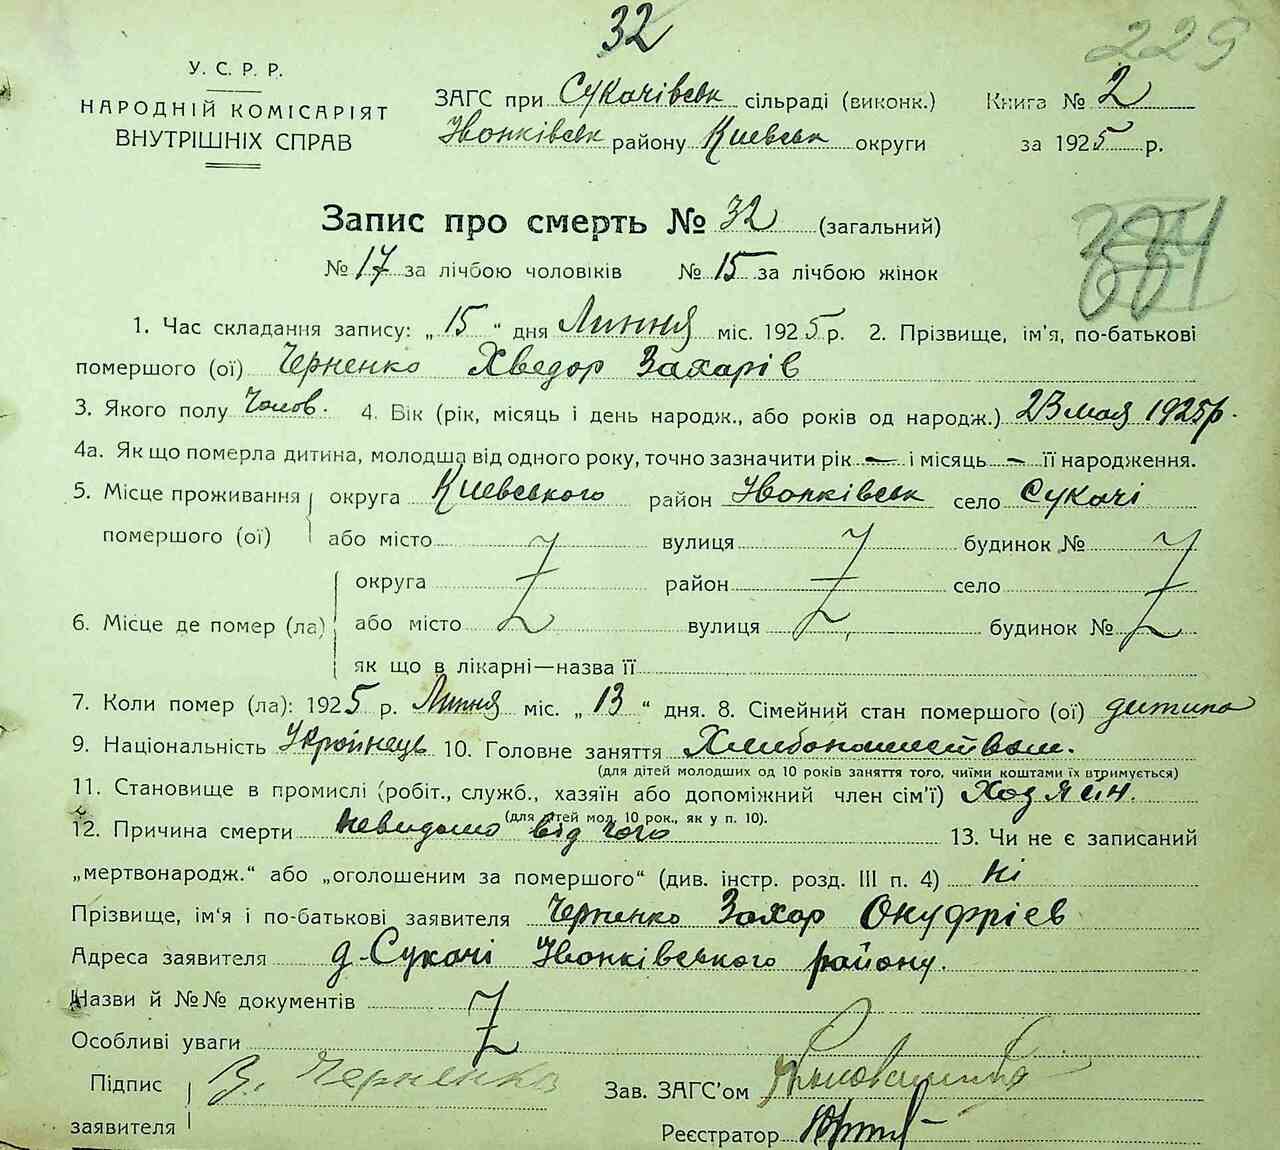 32
229
У. С. Р. Р.
НАРОДНІЙ КОМІСАРІЯТ
ВНУТРІШНІХ СПРАВ
ЗАГС при Сукачівськ сільраді (виконк.)
Книга № 2
Івонківськ району Киевськ округи
за 1925 р.
Запис про смерть № 32 (загальний)
№ 17 за лічбою чоловіків № 15 за лічбою жінок
1. Час складання запису: „ 15 “ дня Липня міс. 1925 р. 2. Прізвище, ім'я, по-батькові
помершого (ої) Черненко Хведор Захарів
3. Якого полу Чолов. 4. Вік (рік, місяць і день народж., або років од народж.) 23 мая 1925 р.
4а. Як що померла дитина, молодша від одного року, точно зазначити рік — і місяць — її народження.
5. Місце проживання округа Киевського район Івонківськ село Сукачі
помершого (ої) або місто Z вулиця Z будинок № Z
округа район село
6. Місце де помер (ла) або місто вулиця будинок №
як що в лікарні—назва її
7. Коли помер (ла): 1925 р. Липня міс. „ 13 “ дня. 8. Сімейний стан помершого (ої) дитина
9. Національність Украйнець 10. Головне заняття Хлибопашеством.
(для дітей молодших од 10 років заняття того, чиїми коштами їх втримується)
11. Становище в промислі (робіт., служб., хазяїн або допоміжний член сім'ї) Хозяин.
(для дітей мол. 10 рок., як у п. 10).
12. Причина смерти невидомо від чого 13. Чи не є записаний
„мертвонародж.“ або „оголошеним за помершого“ (див. інстр. розд. III п. 4) ні
Прізвище, ім'я і по-батькові заявителя Черненко Захар Онуфріев
Адреса заявителя д. Сукачі Івонківського району.
Назви й №№ документів Z
Особливі уваги
Підпис
заявителя
З. Черненко
Зав. ЗАГС'ом
Реєстратор